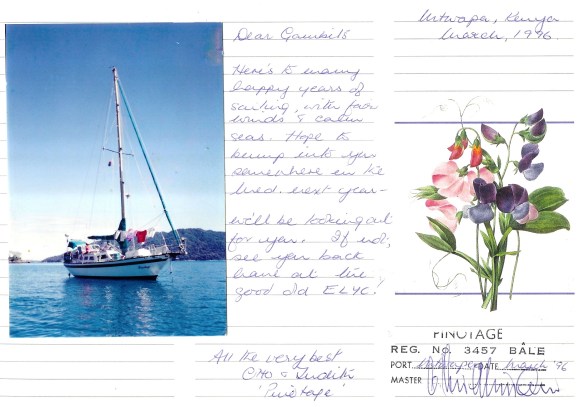 Mtwapa, Kenya
March, 1996
Dear Gambits
Here's to many
happy years of
sailing, with fair
winds & calm
seas. Hope to
bump into you
somewhere in the
Med. next year –
we'll be looking out
for you. If not,
see you back
here at the
good old ELYC!
All the very best
Otto & Judith
'Pinotage'
PINOTAGE
REG. No. 3457 BÂLE
PORT Mtwapa DATE March '96
MASTER